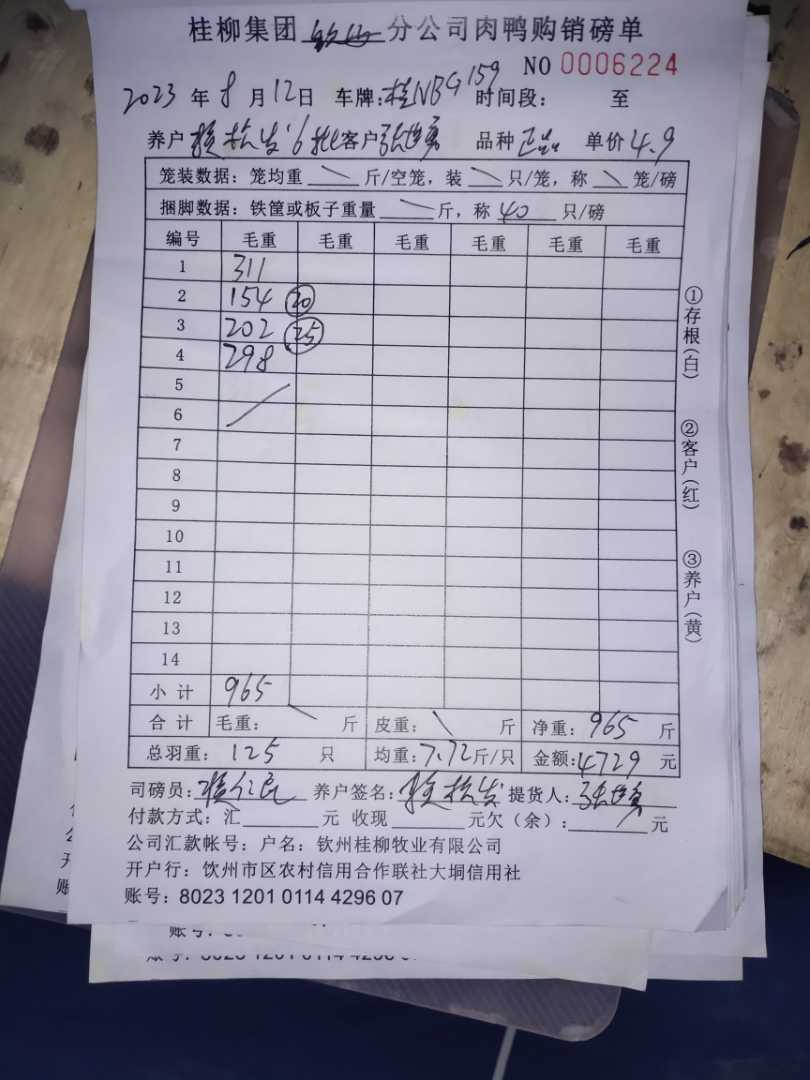 桂柳集团 分公司肉鸭购销磅单
NO 0006224
2023 年 8 月 12 日 车牌:桂NBG159 时间段: 至
养户 松 6批 客户 张 勇 品种 正品 单价 4.9
笼装数据: 笼均重 斤/空笼, 装 只/笼, 称 笼/磅
捆脚数据: 铁筐或板子重量 斤, 称 40 只/磅
编号 毛重 毛重 毛重 毛重 毛重 毛重
1 311
2 154 20
3 202 25
4 298
5
6
7
8
9
10
11
12
13
14
小计 965
合计 毛重: 斤 皮重: 斤 净重: 965 斤
总羽重: 125 只 均重: 7.72 斤/只 金额: 4729 元
司磅员: 养户签名: 提货人: 张 勇
付款方式: 汇 元 收现 元欠(余): 元
公司汇款帐号: 户名: 钦州桂柳牧业有限公司
开户行: 饮州市区农村信用合作联社大垌信用社
账号: 8023 1201 0114 4296 07
①存根(白)
②客户(红)
③养户(黄)